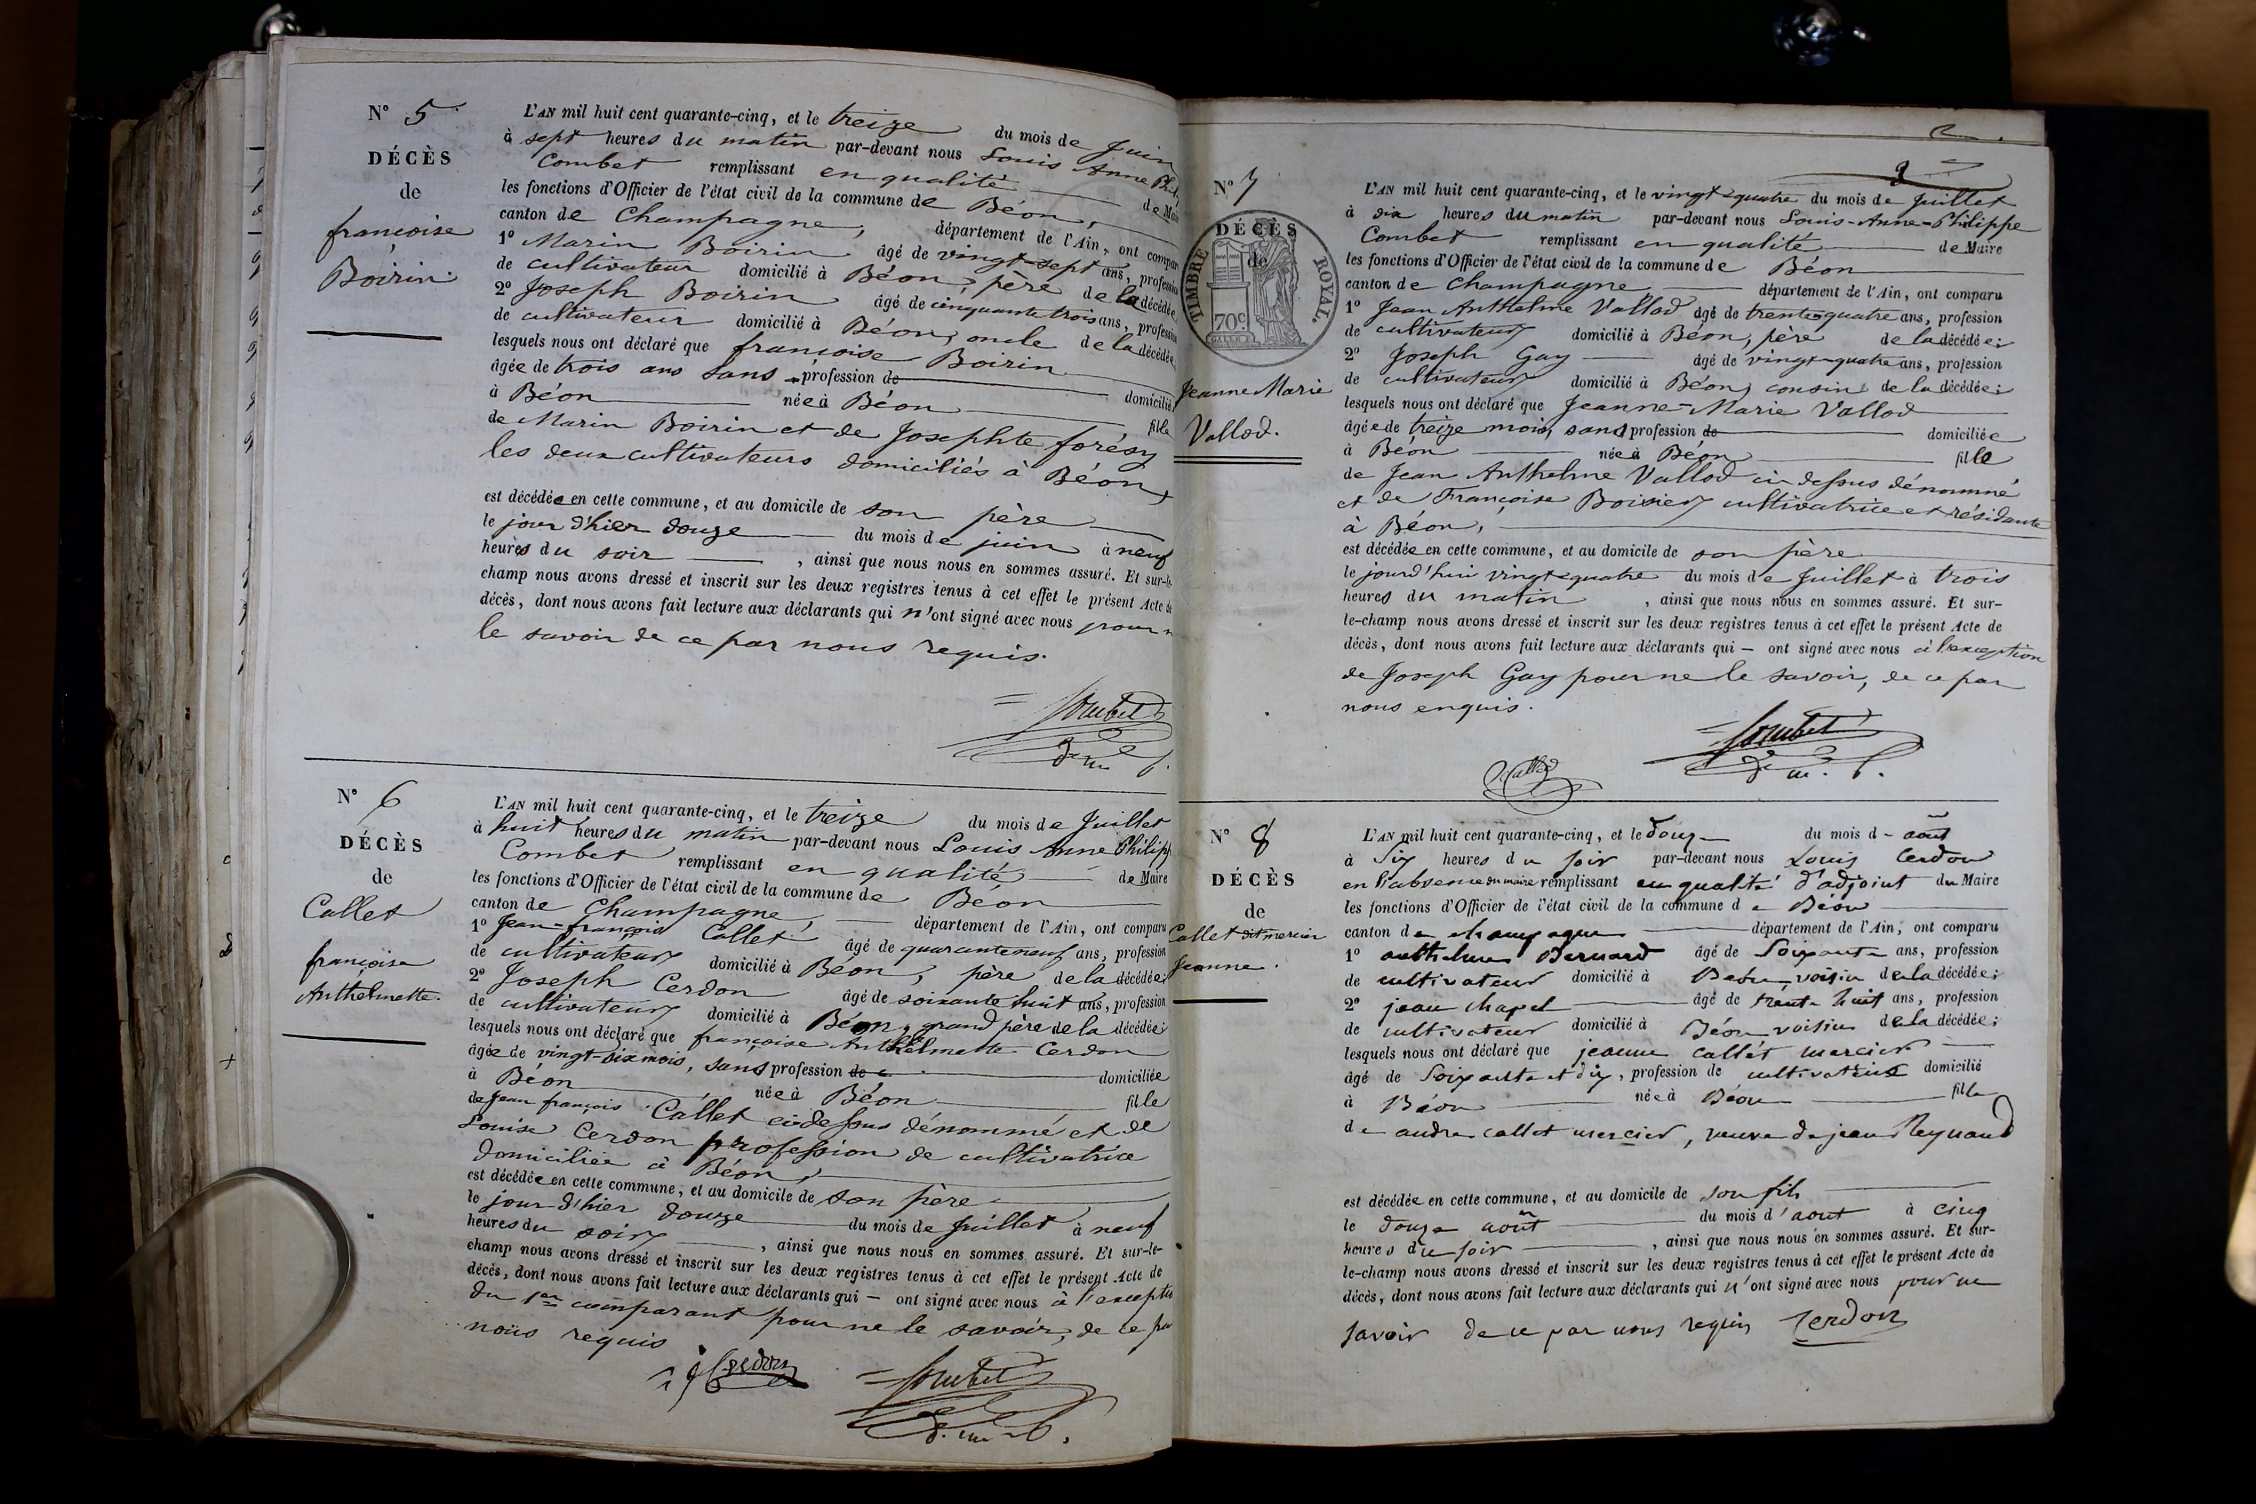 N° 5
DÉCÈS
de
françoise
Boirin.
L'AN mil huit cent quarante-cinq, et le treize du mois de Juin
à sept heures du matin par-devant nous Louis Anne Ph
Combet remplissant en qualité de Mai
les fonctions d'Officier de l'état civil de la commune de Béon,
canton de Champagne, département de l'Ain, ont compar
1° Marin Boirin âgé de vingt-sept ans, profession
de cultivateur domicilié à Béon, père de la décédée
2° Joseph Boirin âgé de cinquante trois ans, profession
de cultivateur domicilié à Béon, oncle de la décédée
lesquels nous ont déclaré que françoise Boirin
âgée de trois ans sans profession de domicilié
à Béon née à Béon fille
de Marin Boirin et de Josephte forésy
les deux cultivateurs domiciliés à Béon,
est décédée en cette commune, et au domicile de son père
le jour d'hier douze du mois de juin à neuf
heures du soir , ainsi que nous nous en sommes assuré. Et sur-le-
champ nous avons dressé et inscrit sur les deux registres tenus à cet effet le présent Acte de
décès, dont nous avons fait lecture aux déclarants qui n'ont signé avec nous pour n
le savoir de ce par nous requis.
Combet
N° 6
DÉCÈS
de
Callet
françoise
Anthelmette.
L'AN mil huit cent quarante-cinq, et le treize du mois de Juillet
à huit heures du matin par-devant nous Louis Anne Philipp
Combet remplissant en qualité de Maire
les fonctions d'Officier de l'état civil de la commune de Béon
canton de Champagne, département de l'Ain, ont comparu
1° Jean-françois Callet âgé de quarante neuf ans, profession
de cultivateur domicilié à Béon, père de la décédée;
2° Joseph Cerdon âgé de soixante huit ans, profession
de cultivateur domicilié à Béon, grand père de la décédée;
lesquels nous ont déclaré que françoise Anthelmette Cerdon
âgée de vingt-dix mois, sans profession de domiciliée
à Béon née à Béon fille
de Jean françois Callet ci-dessus dénommé et de
Louise Cerdon profession de cultivatrice
domiciliée à Béon,
est décédée en cette commune, et au domicile de son père
le jour d'hier douze du mois de Juillet à neuf
heures du soir , ainsi que nous nous en sommes assuré. Et sur-le-
champ nous avons dressé et inscrit sur les deux registres tenus à cet effet le présent Acte de
décès, dont nous avons fait lecture aux déclarants qui — ont signé avec nous à l'exception
du 1er comparant pour ne le savoir, de ce par
nous requis
Cerdon
Combet
N° 7
DÉCÈS
de
TIMBRE ROYAL.
70c.
Jeanne Marie
Vallod.
L'AN mil huit cent quarante-cinq, et le vingt-quatre du mois de Juillet
à dix heures du matin par-devant nous Louis-Anne-Philippe
Combet remplissant en qualité de Maire
les fonctions d'Officier de l'état civil de la commune de Béon
canton de Champagne département de l'Ain, ont comparu
1° Jean Anthelme Vallod âgé de trente-quatre ans, profession
de cultivateur domicilié à Béon, père de la décédée;
2° Joseph Gay âgé de vingt-quatre ans, profession
de cultivateur domicilié à Béon, cousin de la décédée;
lesquels nous ont déclaré que Jeanne-Marie Vallod
âgée de treize mois, sans profession de domiciliée
à Béon née à Béon fille
de Jean Anthelme Vallod ci dessus dénommé
et de Françoise Boirier cultivatrice et résidante
à Béon,
est décédée en cette commune, et au domicile de son père
le jourd'hui vingt-quatre du mois de Juillet à trois
heures du matin , ainsi que nous nous en sommes assuré. Et sur-
le-champ nous avons dressé et inscrit sur les deux registres tenus à cet effet le présent Acte de
décès, dont nous avons fait lecture aux déclarants qui — ont signé avec nous à l'exception
de Joseph Gay pour ne le savoir, de ce par
nous enquis.
Combet
Vallod
N° 8
DÉCÈS
de
Callet dit mercier
Jeanne.
L'AN mil huit cent quarante-cinq, et le douze du mois d'août
à Six heures du soir par-devant nous Louis Cerdon
en l'absence du maire remplissant en qualité d'adjoint du Maire
les fonctions d'Officier de l'état civil de la commune de Béon
canton de champagne département de l'Ain, ont comparu
1° anthelme Bernard âgé de Soixante ans, profession
de cultivateur domicilié à Béon, voisin de la décédée;
2° jean chapel âgé de trante huit ans, profession
de cultivateur domicilié à Béon voisin de la décédée;
lesquels nous ont déclaré que jeanne callet mercier
âgé de Soixante et dix, profession de cultivateur domicilié
à Béon née à Béon fille
de andre callet mercier, veuve de jean Reynaud
est décédée en cette commune, et au domicile de son fils
le douze août du mois d'aout à cinq
heures du soir , ainsi que nous nous en sommes assuré. Et sur-
le-champ nous avons dressé et inscrit sur les deux registres tenus à cet effet le présent Acte de
décès, dont nous avons fait lecture aux déclarants qui n'ont signé avec nous pour ne
savoir de ce par nous requis Cerdon